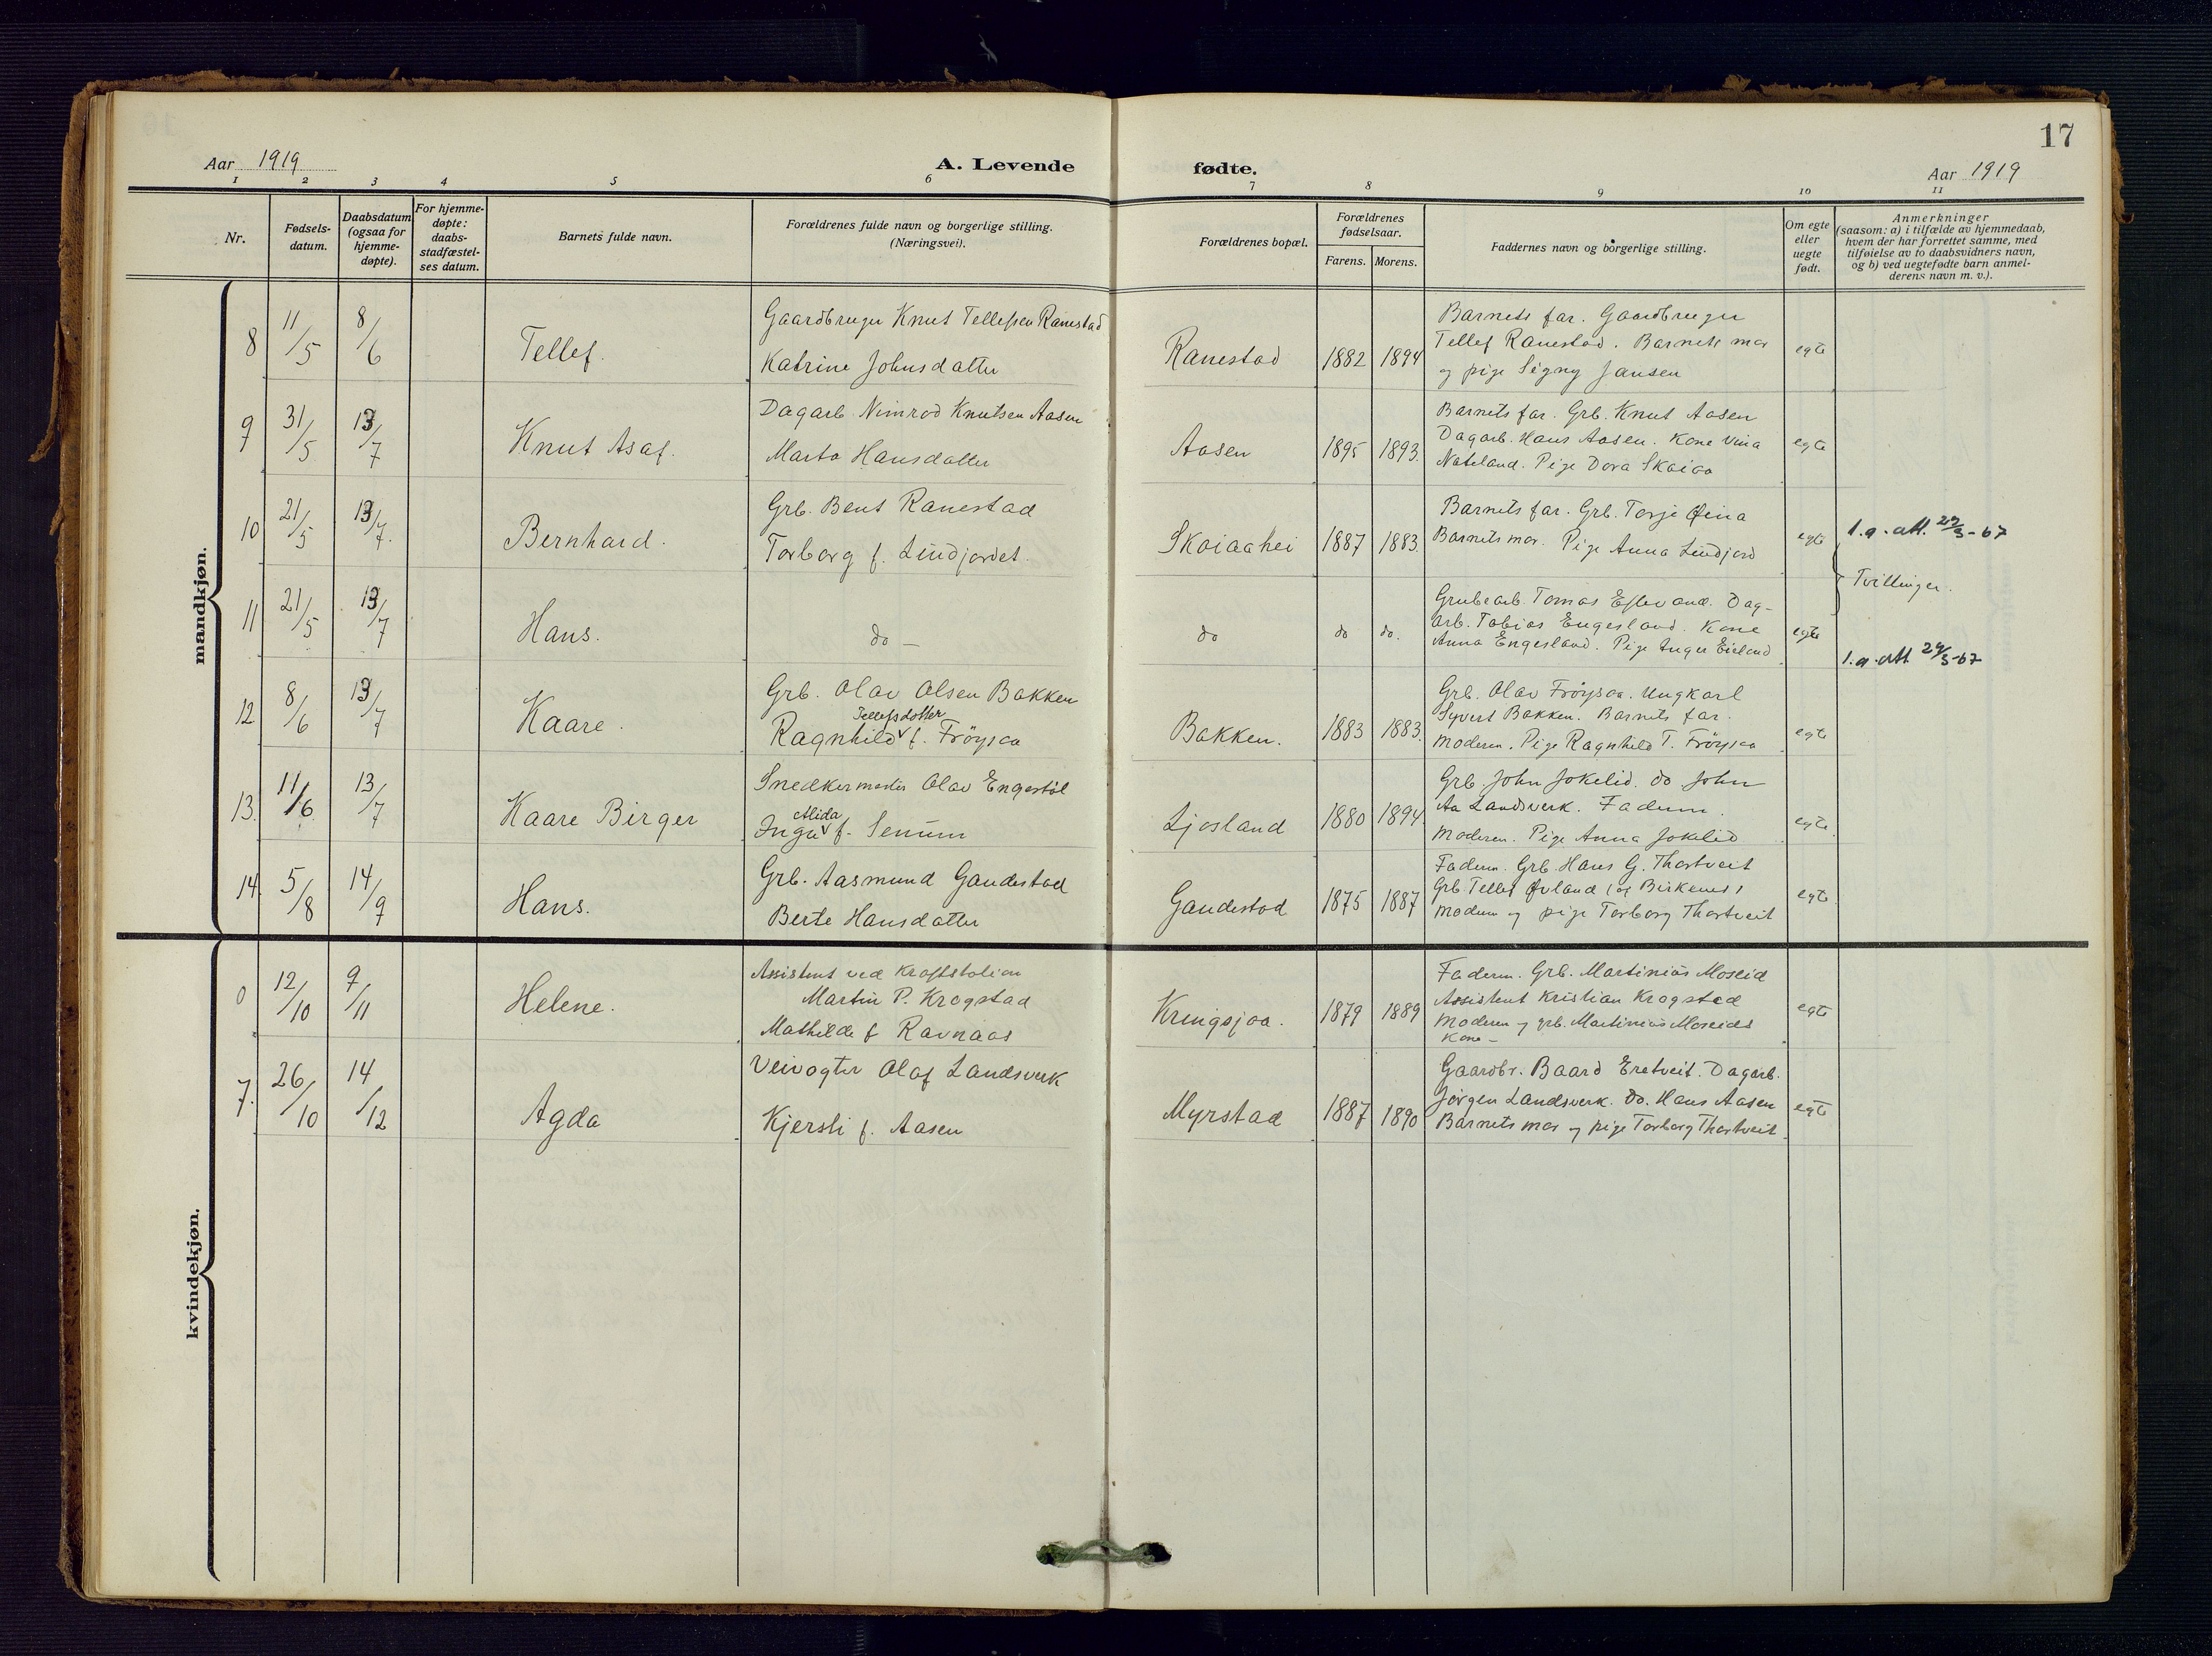 17
Aar 1919
A. Levende fødte.
Aar 1919
1 2 3 4 5 6 7 8 9 10 11
Nr.
Fødsels-
datum.
Daabsdatum
(ogsaa for
hjemme-
døpte).
For hjemme-
døpte:
daabs-
stadfæstel-
ses datum.
Barnets fulde navn.
Forældrenes fulde navn og borgerlige stilling.
(Næringsvei).
Forældrenes bopæl.
Forældrenes
fødselsaar.
Farens. Morens.
Faddernes navn og borgerlige stilling.
Om egte
eller
uegte
født.
Anmerkninger
(saasom: a) i tilfælde av hjemmedaab,
hvem der har forrettet samme, med
tilføielse av to daabsvidners navn,
og b) ved uegtefødte barn anmel-
derens navn m. v.).
mandkjøn.
8 11/5 8/6 Tellef.
Gaardbruger Knut Tellefsen Ranestad
Katrine Johnsdatter
Ranestad 1882 1894
Barnets far. Gaardbruger
Tellef Ranestad. Barnets mor
og pige Signy Jansen
egte
9 31/5 13/7 Knut Asaf.
Dagarb. Nimrod Knutsen Aasen
Marta Hansdatter
Aasen 1895 1893.
Barnets far. Grb. Knut Aasen
Dagarb. Hans Aasen. Kone Vina
Nateland. Pige Dora Skaiaa
egte
10 21/5 13/7. Bernhard.
Grb. Bent Ranestad
Torborg f. Lindjordet.
Skaiaahei 1887 1883.
Barnets far. Grb. Torje Øina
Barnets mor. Pige Anna Lindjord
egte
1.a. att. 29/3-67
Tvillinger.
11 21/5 13/7 Hans.
do —
do do do.
Grubearb. Tomas Eftevand. Dag-
arb. Tobias Engesland. Kone
Anna Engesland. Pige Inger Eieland
egte
1.a. att. 29/3-67
12 8/6 13/7 Kaare.
Grb. Olav Olsen Bakken
Tellefsdotter
Ragnhild f. Frøysaa
Bakken. 1883 1883.
Grb. Olav Frøysaa. Ungkarl
Syvert Bakken. Barnets far.
Moderen. Pige Ragnhild T. Frøysaa
egte
13. 11/6 13/7 Kaare Birger
Snedkermester Olav Engestøl
Alida
Inga f. Senum
Ljosland 1880 1894.
Grb. John Jokelid. do John
Aa Landsverk. Faderen.
Moderen. Pige Anna Jokelid
egte
14. 5/8 14/9 Hans.
Grb. Aasmund Gaudestad
Berte Hansdatter
Gaudestad 1875 1887
Faderen. Grb. Hans G. Thortveit
Grb. Tellef Øvland (af Birkenes)
Moderen og pige Torborg Thortveit
egte
kvindekjøn.
12/10 9/11 Helene.
Assistent ved Kraftstation
Martin P. Krogstad
Mathilde f Ravnaas
Kringsjaa. 1879 1889
Faderen. Grb. Martinius Moseid
Assistent Kristian Krogstad
Moderen og grb. Martinius Moseids
Kone —
egte
7. 26/10 14/12 Agda
Veivogter Olaf Landsverk
Kjersti f. Aasen
Myrstad 1887 1890
Gaardbr. Baard Eretveit. Dagarb.
Jørgen Landsverk. do. Hans Aasen
Barnets mor og pige Torborg Thortveit
egte